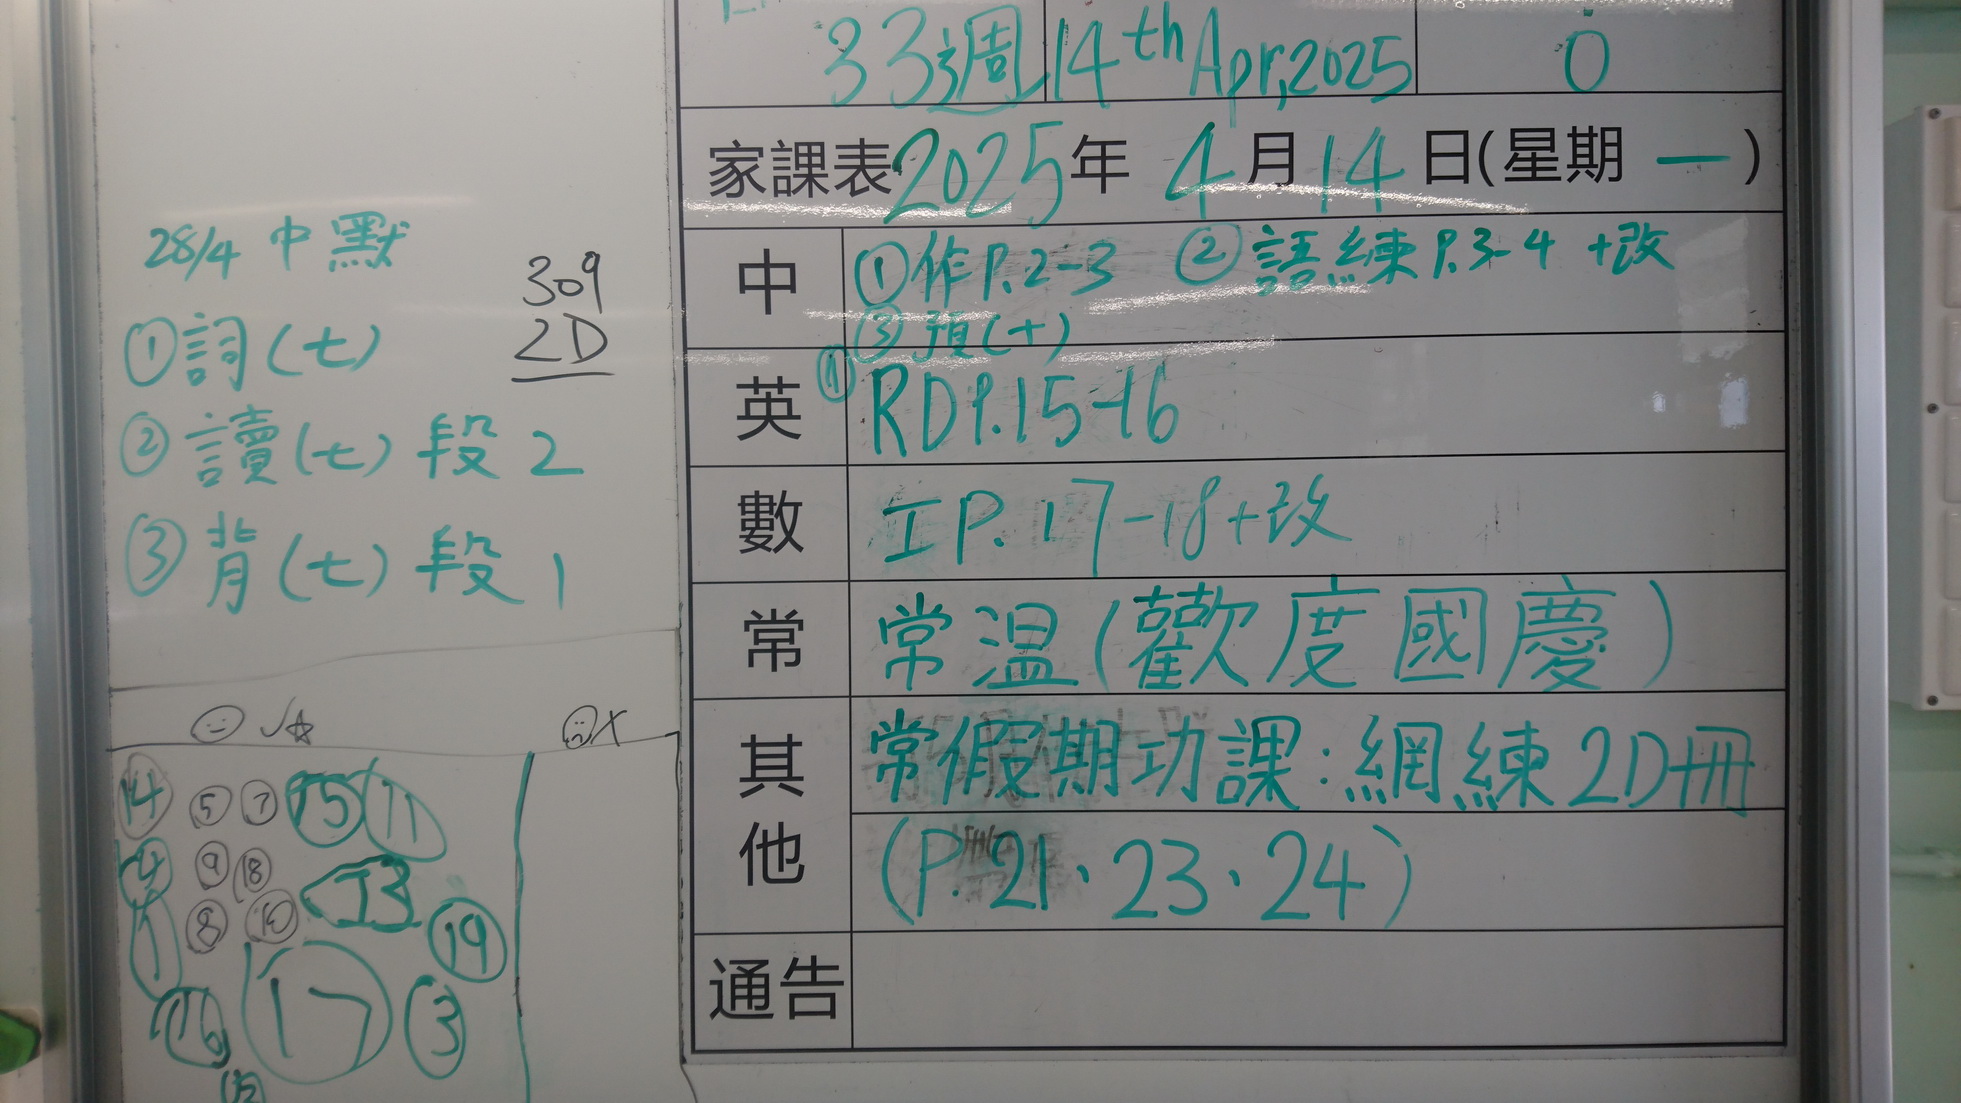 33週 14th Apr,2025 0
家課表 2025年 4月14日(星期一)
中 ①作P.2-3 ②語練P.3-4 +改
③預(十)
英 ①RD P.15-16
數 工P.17-18+改
常 常温(歡度國慶)
其他 常假期功課:網練2D冊
(P.21、23、24)
通告
28/4 中默
①詞(七)
②讀(七)段2
③背(七)段1
309
2D
14 5 7 15 11
4 9 18 13
1 8 10 19
16 17 3